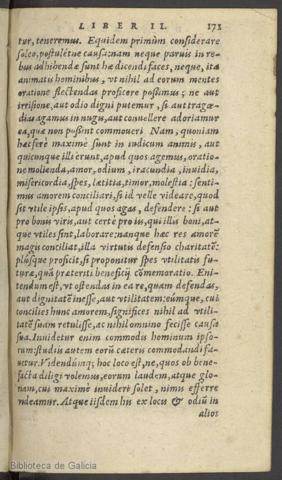 LIBER II. 171
tur, teneremus. Equidem primùm considerare
soleo, postulétne causa: nam neque paruis in re-
bus adhibendæ sunt hæ dicendi faces, neque, ita
animatis hominibus, vt nihil ad eorum mentes
oratione flectendas proficere possimus; ne aut
irrisione, aut odio digni putemur, si aut tragœ-
dias agamus in nugis, aut conuellere adoriamur
ea, quæ non possint commoueri. Nam, quoniam
hæc ferè maximè sunt in iudicum animis, aut
quicunque illi erunt, apud quos agemus, oratio-
ne molienda, amor, odium, iracundia, inuidia,
misericordia, spes, lætitia, timor, molestia: senti-
mus amorem conciliari, si id velle videare, quod
sit vtile ipsis, apud quos agas, defendere: si aut
pro bonis viris, aut certè pro iis, qui illis boni, at-
que vtiles sint, laborare: nanque hæc res amorē
magis conciliat, illa virtutis defensio charitatē:
plúsque proficit, si proponitur spes vtilitatis fu-
turæ, quā præteriti beneficij cōmemoratio. Eni-
tendum est, vt ostendas in ea re, quam defendas,
aut dignitatē inesse, aut vtilitatem: eúmque, cui
concilies hunc amorem, significes nihil ad vtili-
tatē suam retulisse, ac nihil omnino fecisse causa
sua. Inuidetur enim commodis hominum ipso-
rum: studiis autem eorū cæteris commodandi fa-
uetur. Videndúmq; hoc loco est, ne, quos ob bene-
facta diligi volemus, eorum laudem, atque glo-
riam, cui maximè inuideri solet, nimis efferre
videamur. Atque iisdem his ex locis & odiū in
alios
Biblioteca de Galicia